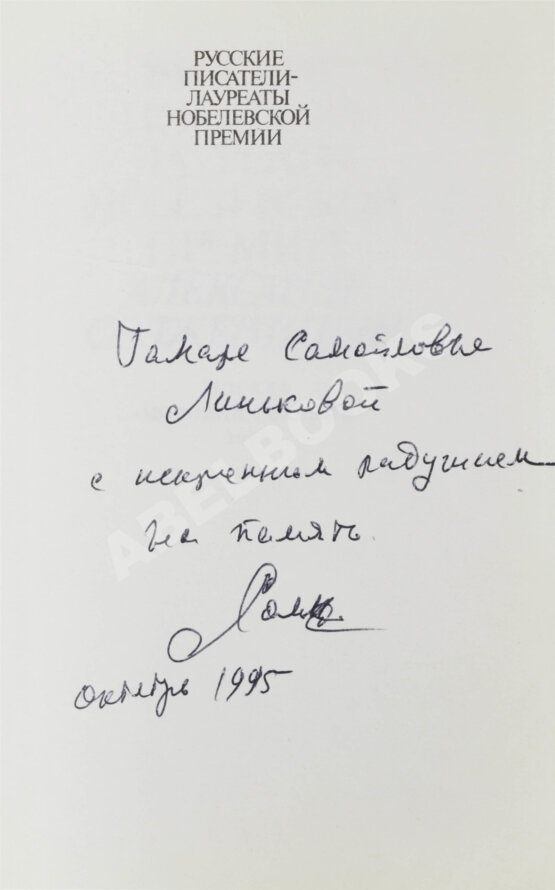 РУССКИЕ
ПИСАТЕЛИ-
ЛАУРЕАТЫ
НОБЕЛЕВСКОЙ
ПРЕМИИ
Тамаре Самойловне
Линьковой
с искренним радушием
на память.
октябрь 1995
ABELBOOKS